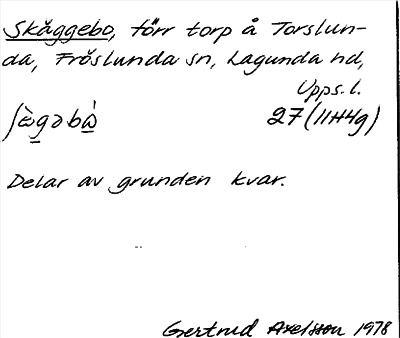 Skäggebo, förr torp å Torslun-
da, Fröslunda sn, Lagunda hd,
Upps. l.
27 (11H4g)
Delar av grunden kvar.
Gertrud Axelsson 1978